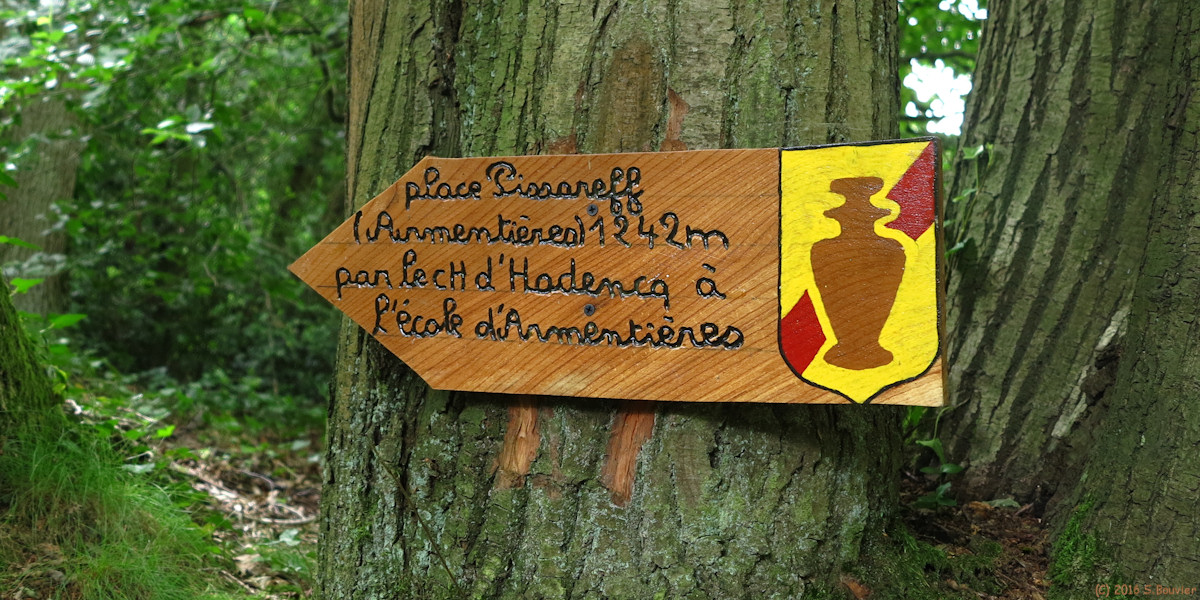 place Pissareff
(Armentières) 1242m
par le cH d'Hadencq à
l'école d'Armentières
(C) 2016 S.Bouvier